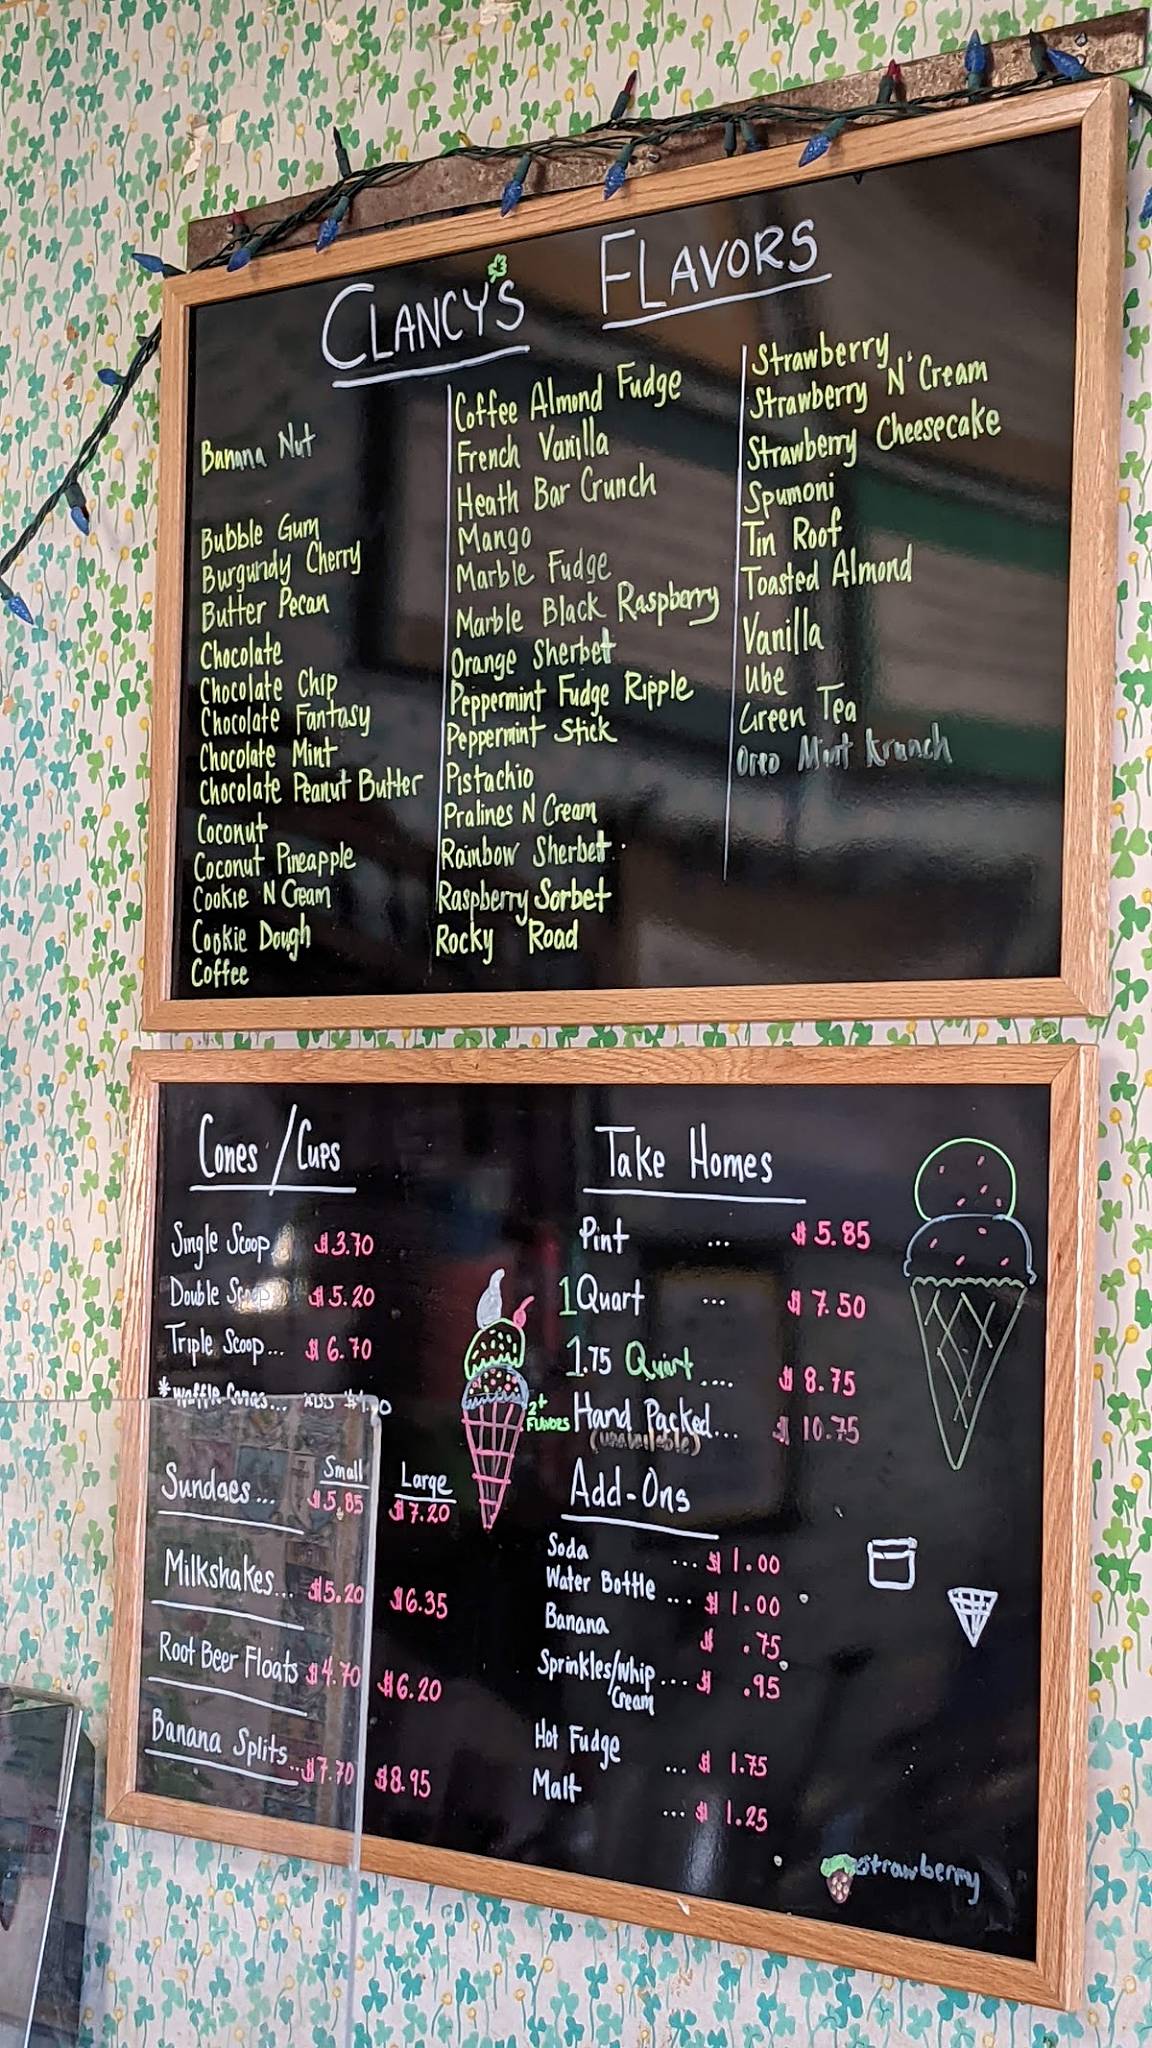 CLANCY'S FLAVORS
Banana Nut
Bubble Gum
Burgundy Cherry
Butter Pecan
Chocolate
Chocolate Chip
Chocolate Fantasy
Chocolate Mint
Chocolate Peanut Butter
Coconut
Coconut Pineapple
Cookie N Cream
Cookie Dough
Coffee
Coffee Almond Fudge
French Vanilla
Heath Bar Crunch
Mango
Marble Fudge
Marble Black Raspberry
Orange Sherbet
Peppermint Fudge Ripple
Peppermint Stick
Pistachio
Pralines N Cream
Rainbow Sherbet
Raspberry Sorbet
Rocky Road
Strawberry
Strawberry N' Cream
Strawberry Cheesecake
Spumoni
Tin Roof
Toasted Almond
Vanilla
Ube
Green Tea
Oreo Mint Krunch
Cones / Cups
Single Scoop $3.70
Double Scoop $5.20
Triple Scoop... $6.70
*Waffle Cones... ADD $1.00
Small Large
Sundaes... $5.85 $7.20
Milkshakes... $5.20 $6.35
Root Beer Floats $4.70 $6.20
Banana Splits... $7.70 $8.95
2+
FLAVORS
Take Homes
Pint ... $5.85
1 Quart ... $7.50
1.75 Quart .... $8.75
Hand Packed... $10.75
(unavailable)
Add-Ons
Soda ... $1.00
Water Bottle ... $1.00
Banana $ .75
Sprinkles/Whip Cream ... $ .95
Hot Fudge ... $ 1.75
Malt ... $ 1.25
strawberry